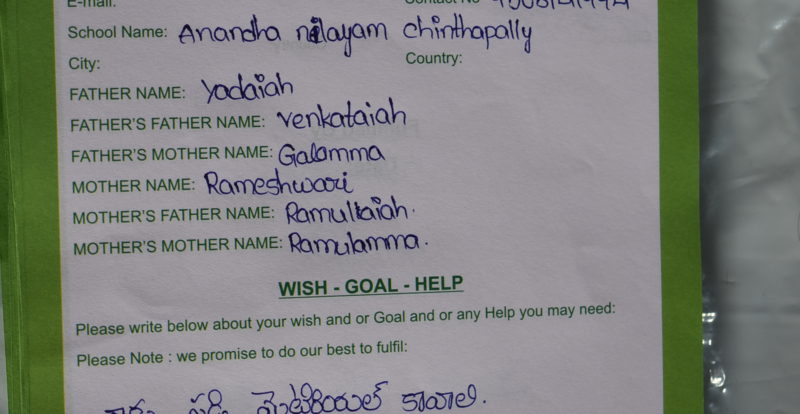 E-mail: Contact No
School Name: Anandha nilayam chinthapally
City: Country:
FATHER NAME: Yadaiah
FATHER'S FATHER NAME: Venkataiah
FATHER'S MOTHER NAME: Galamma
MOTHER NAME: Rameshwari
MOTHER'S FATHER NAME: Ramulaiah.
MOTHER'S MOTHER NAME: Ramulamma.
WISH - GOAL - HELP
Please write below about your wish and or Goal and or any Help you may need:
Please Note : we promise to do our best to fulfil:
స్టడి మెటీరియల్ కావాలి.